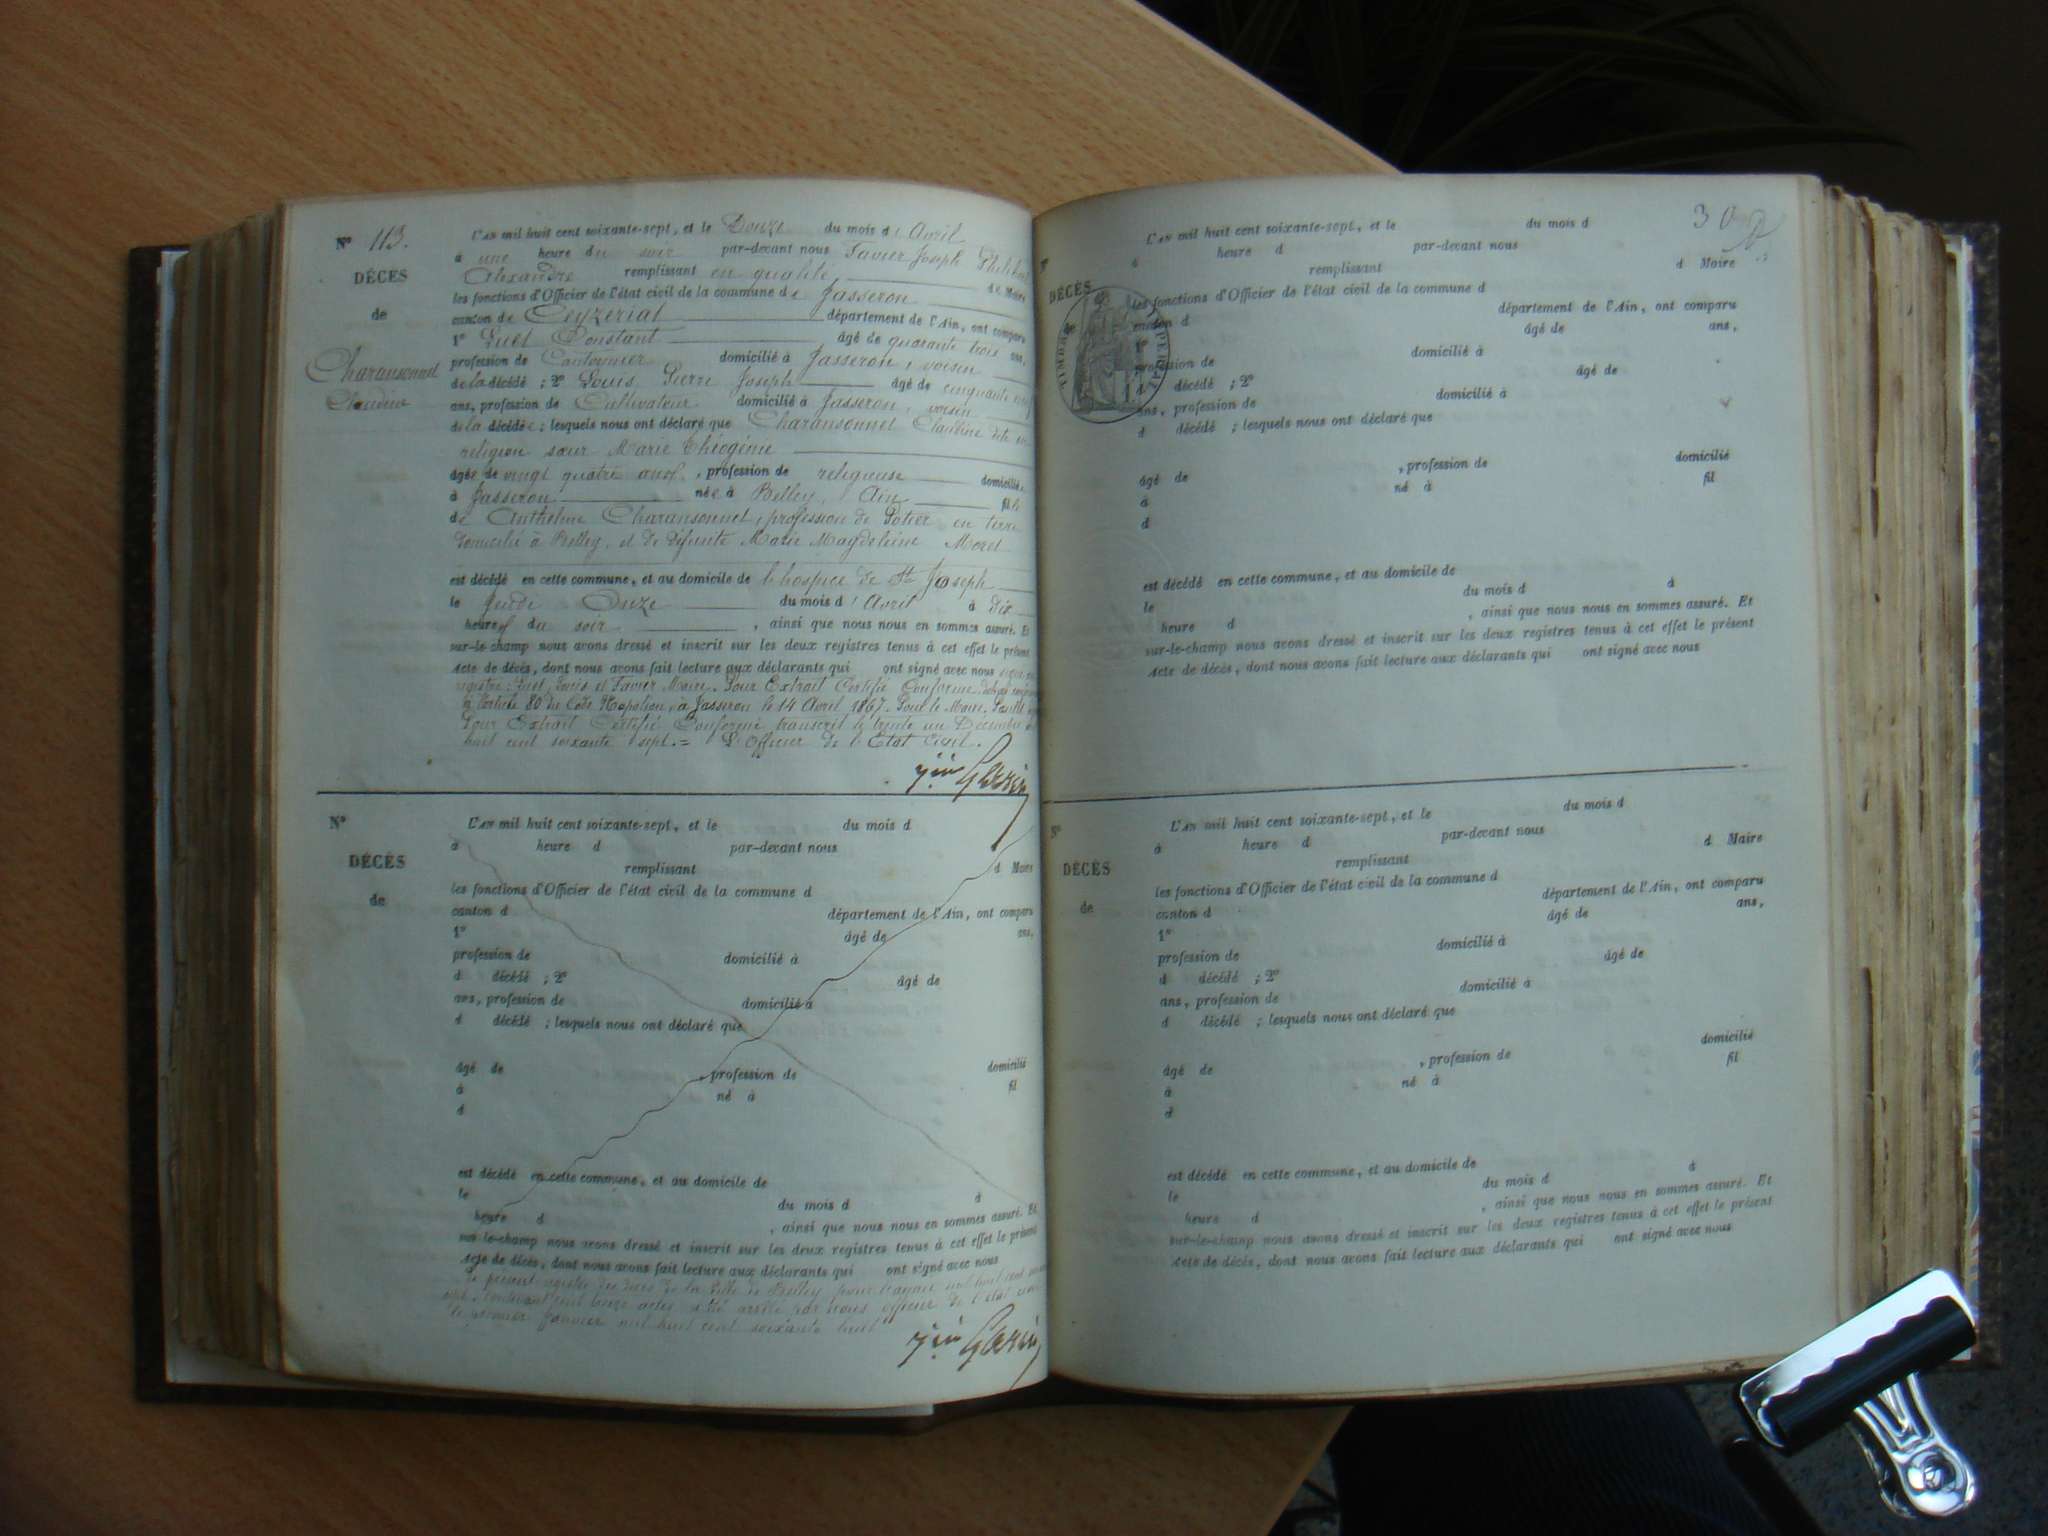 N° 113.
DÉCÈS
de
Charansonnel
Claudine
L'AN mil huit cent soixante-sept, et le Douze du mois d'Avril
à une heure du soir par-devant nous Favier Joseph Philibert
Alexandre remplissant en qualité de Maire
les fonctions d'Officier de l'état civil de la commune de Jasseron
canton de Ceyzériat département de l'Ain, ont comparu
1° Luet Constant âgé de quarante trois ans,
profession de Cantonnier domicilié à Jasseron, voisin
de la décédé ; 2° Louis Pierre Joseph âgé de cinquante
ans, profession de Cultivateur domicilié à Jasseron, voisin
de la décédée ; lesquels nous ont déclaré que Charansonnel Claudine dite en
religion sœur Marie Théogénie
âgée de vingt quatre ans, profession de religieuse domiciliée
à Jasseron née à Belley, Ain fille
de Anthelme Charansonnel, profession de Potier en terre
domicilié à Belley, et de défunte Marie Magdeleine Moret
est décédé en cette commune, et au domicile de l'hospice de St Joseph
le Jeudi Onze du mois d'Avril à dix
heures du soir, ainsi que nous nous en sommes assuré. Et
sur-le-champ nous avons dressé et inscrit sur les deux registres tenus à cet effet le présent
Acte de décès, dont nous avons fait lecture aux déclarants qui ont signé avec nous
registre: Luet, Louis et Favier Maire. Pour Extrait Certifié Conforme
à l'article 80 du Code Napoléon, à Jasseron le 14 Avril 1867. Pour le Maire,
Pour Extrait Certifié Conforme transcrit le trente un Décembre
huit cent soixante sept.= L'Officier de l'Etat Civil.
N°
DÉCÈS
de
L'AN mil huit cent soixante-sept, et le du mois d
à heure d par-devant nous
remplissant d Maire
les fonctions d'Officier de l'état civil de la commune d
canton d département de l'Ain, ont comparu
1° âgé de ans,
profession de domicilié à
d décédé ; 2° âgé de
ans, profession de domicilié à
d décédé ; lesquels nous ont déclaré que
âgé de , profession de domicilié
à né à fil
d
est décédé en cette commune, et au domicile de
le du mois d à
heure d , ainsi que nous nous en sommes assuré. Et
sur-le-champ nous avons dressé et inscrit sur les deux registres tenus à cet effet le présent
Acte de décès, dont nous avons fait lecture aux déclarants qui ont signé avec nous
Le présent registre des décès de la Ville de Belley pour l'année mil huit cent
sept, contenant cent treize actes a été arrêté par nous officier de l'état civil
le premier Janvier mil huit cent soixante huit
30
DÉCÈS
de
TIMBRE IMPERIAL
L'AN mil huit cent soixante-sept, et le du mois d
à heure d par-devant nous
remplissant d Maire
les fonctions d'Officier de l'état civil de la commune d
canton d département de l'Ain, ont comparu
1° âgé de ans,
profession de domicilié à
d décédé ; 2° âgé de
ans, profession de domicilié à
d décédé ; lesquels nous ont déclaré que
âgé de , profession de domicilié
à né à fil
d
est décédé en cette commune, et au domicile de
le du mois d à
heure d , ainsi que nous nous en sommes assuré. Et
sur-le-champ nous avons dressé et inscrit sur les deux registres tenus à cet effet le présent
Acte de décès, dont nous avons fait lecture aux déclarants qui ont signé avec nous
N°
DÉCÈS
de
L'AN mil huit cent soixante-sept, et le du mois d
à heure d par-devant nous
remplissant d Maire
les fonctions d'Officier de l'état civil de la commune d
canton d département de l'Ain, ont comparu
1° âgé de ans,
profession de domicilié à
d décédé ; 2° âgé de
ans, profession de domicilié à
d décédé ; lesquels nous ont déclaré que
âgé de , profession de domicilié
à né à fil
d
est décédé en cette commune, et au domicile de
le du mois d à
heure d , ainsi que nous nous en sommes assuré. Et
sur-le-champ nous avons dressé et inscrit sur les deux registres tenus à cet effet le présent
Acte de décès, dont nous avons fait lecture aux déclarants qui ont signé avec nous